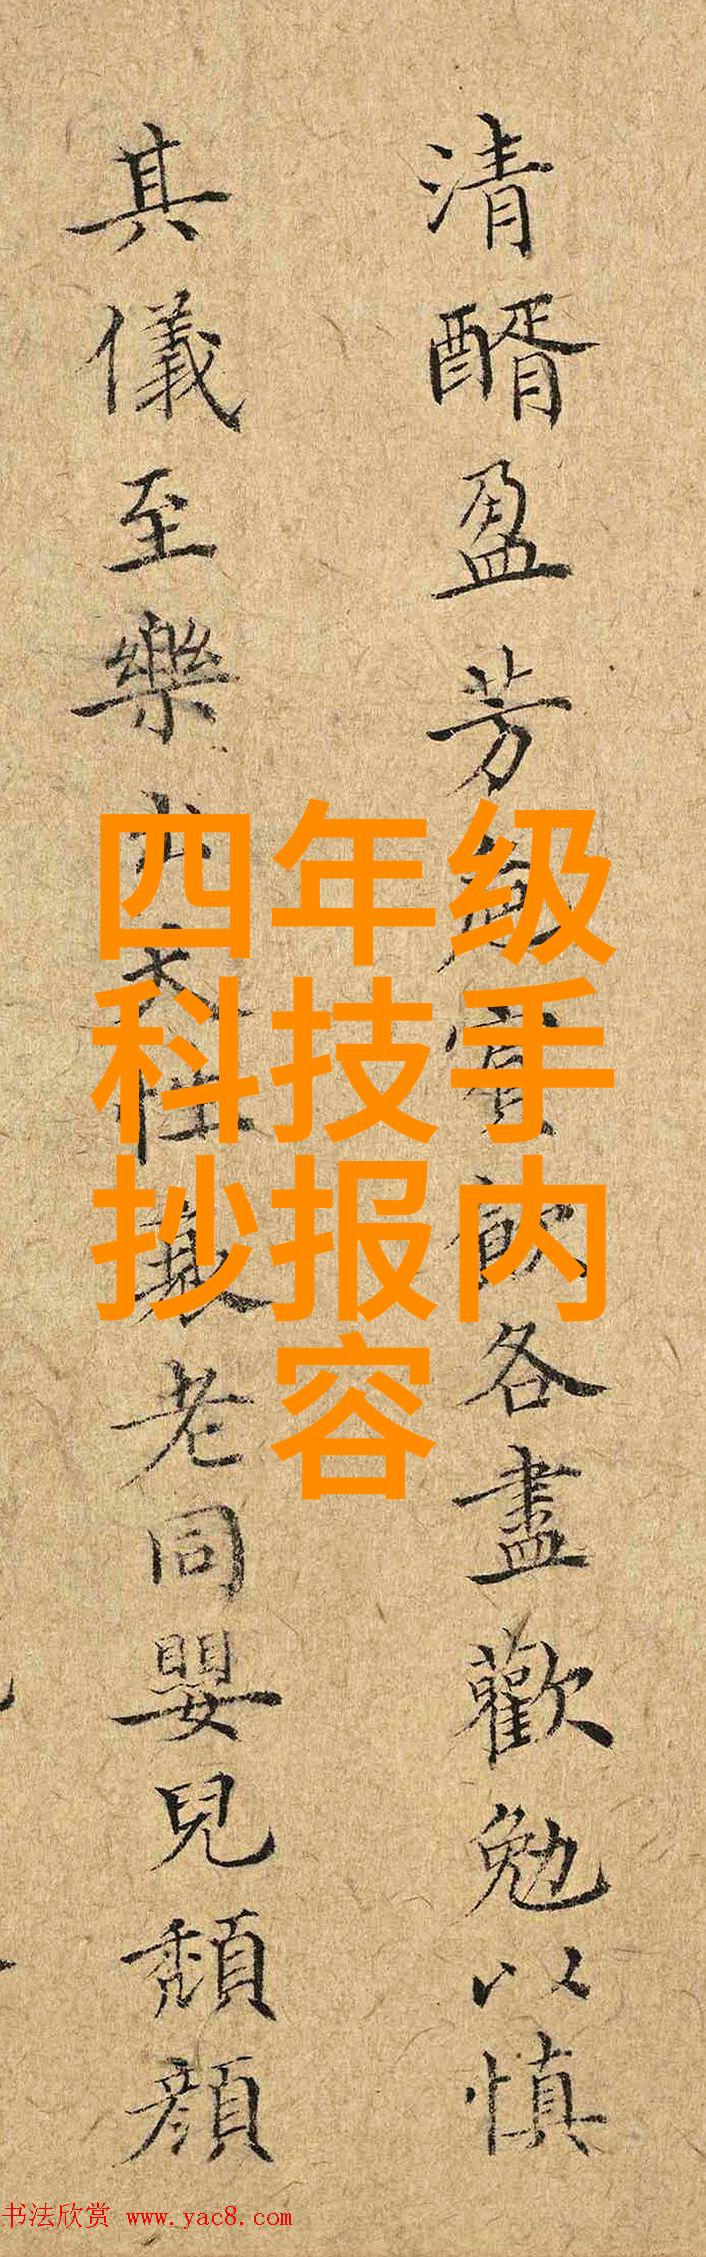 清醑盈芳
飲各盡歡勉以慎
其儀至樂
老同嬰兒頽顔
四年级
科技手
抄报内
容
书法欣赏 www.yac8.com